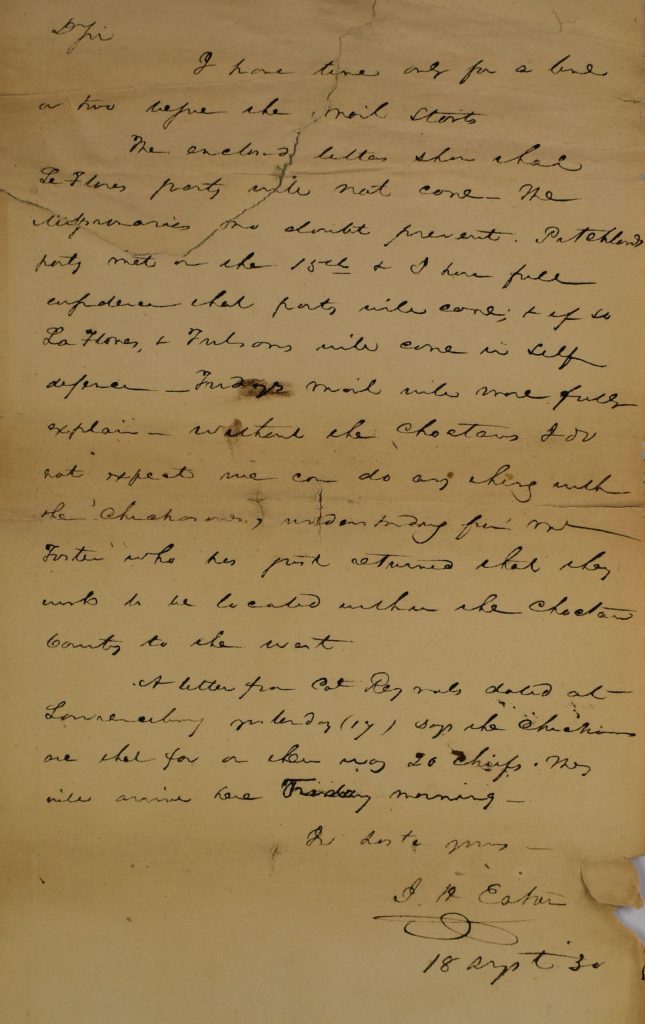 Dr Sir
I have time only for a line
or two before the mail starts
The enclosed letters show that
Le Flores party will not come - The
Missionaries no doubt prevent. Pitchlynns
party met on the 15th & I have full
confidence that party will come; & if so
La Flores, & Fulsons will come in self
defence - Fridays mail will more fully
explain - without the Choctaws I do
not expect we can do any thing with
the Chickasaws, understanding from
Foster who has just returned that they
wish to be located within the Choctaw
County to the west
A letter from Col Reynolds dated at
Lawrenceburg yesterday (17) says the Chickasaws
are that far on their way 20 chiefs. They
will arrive here Friday morning -
In haste yours -
J. H Eaton
18 Sept 30